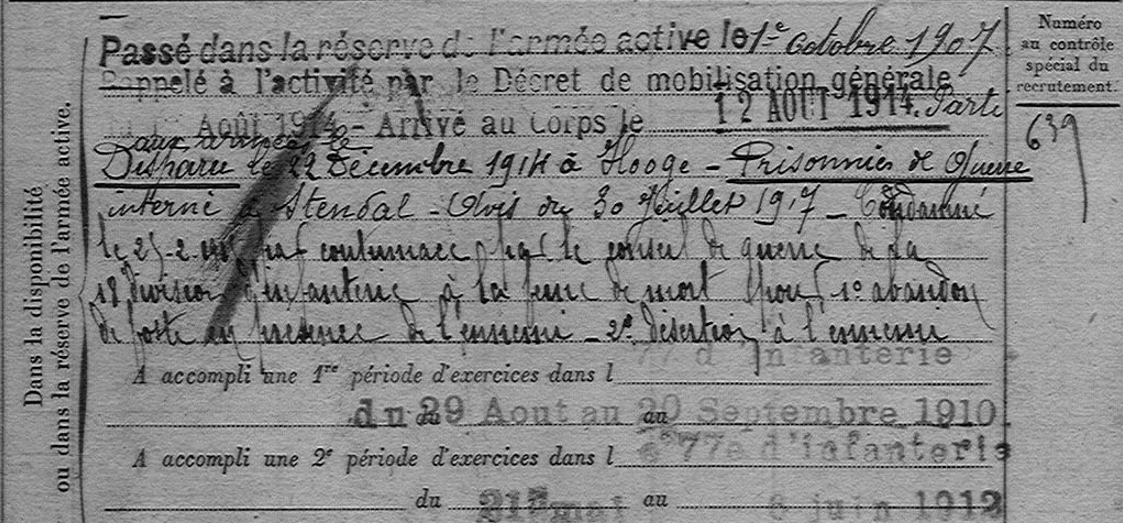 Passé dans la réserve de l'armée active le 1er octobre 1907.
Rappelé à l'activité par le Décret de mobilisation générale
Août 1914 - Arrivé au Corps le 12 AOUT 1914. Parti
aux armées le
Disparu le 22 Décembre 1914 à Hooge - Prisonnier de Guerre
interné à Stendal - Avis du 30 Juillet 1917 - Condamné
le 25-2- par contumace par le conseil de guerre de la
18e division d'infanterie à la peine de mort pour 1º abandon
de poste en présence de l'ennemi - 2º désertion à l'ennemi
77 d'Infanterie
A accompli une 1re période d'exercices dans l
du 29 Aout au 20 Septembre 1910
A accompli une 2e période d'exercices dans l 77e d'infanterie
du 21 mai au 6 juin 1912
Dans la disponibilité
ou dans la réserve de l'armée active.
Numéro
au contrôle
spécial du
recrutement.
639